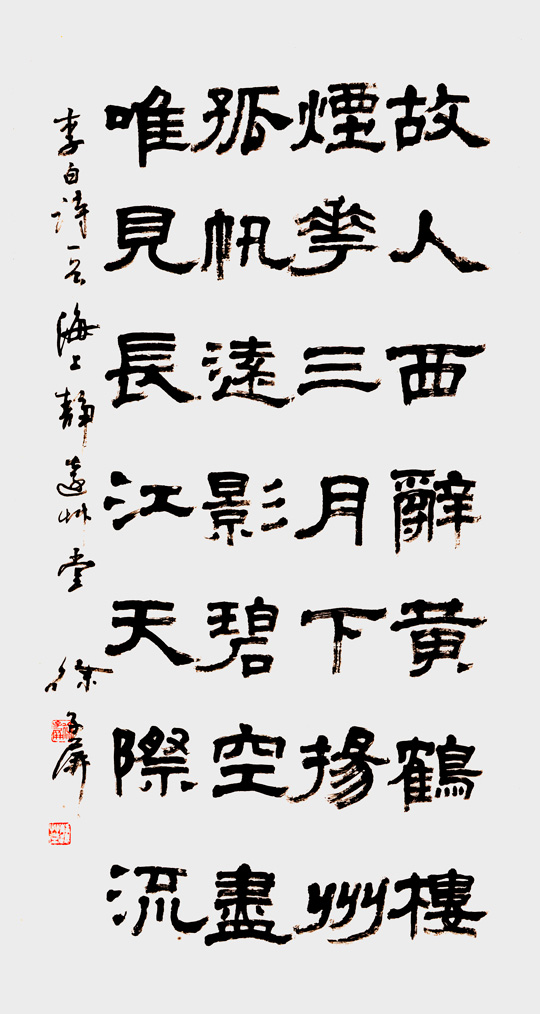 故人西辭黃鶴樓
煙華三月下揚州
孤帆遠影碧空盡
唯見長江天際流
李白詩一首 海上靜遠草堂 徐